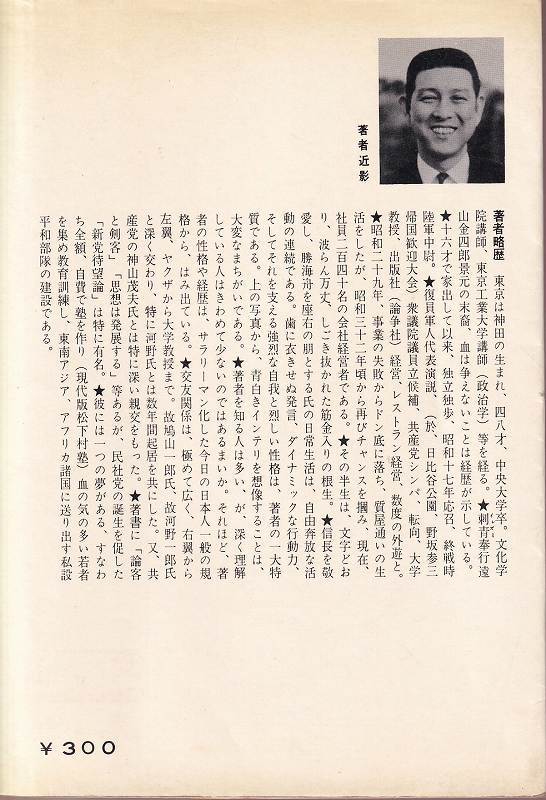 著者近影
著者略歴 東京は神田の生まれ、四八才、中央大学卒。文化学
院講師、東京工業大学講師（政治学）等を経る。★刺青奉行遠
山金四郎景元の末裔、血は争えないことは経歴が示している。
★十六才で家出して以来、独立独歩、昭和十七年応召、終戦時
陸軍中尉。★復員軍人代表演説、（於、日比谷公園、野坂参三
帰国歓迎大会）衆議院議員立候補、共産党シンパ、転向、大学
教授、出版社（論争社）経営、レストラン経営、数度の外遊と。
★昭和二十九年、事業の失敗からドン底に落ち、質屋通いの生
活をしたが、昭和三十二年頃から再びチャンスを掴み、現在、
社員二百四十名の会社経営者である。★その半生は、文字どお
り、波らん万丈、しごき抜かれた筋金入りの根生。★信長を敬
愛し、勝海舟を座右の朋とする氏の日常生活は、自由奔放な活
動の連続である。歯に衣きせぬ発言、ダイナミックな行動力、
そしてそれを支える強烈な自我と烈しい性格は、著者の一大特
質である。上の写真から、青白きインテリを想像することは、
大変なまちがいである。★著者を知る人は多い、が、深く理解
している人はきわめて少ないのではあるまいか。それほど、著
者の性格や経歴は、サラリーマン化した今日の日本人一般の規
格から、はみ出ている。★交友関係は、極めて広く、右翼から
左翼、ヤクザから大学教授まで。故鳩山一郎氏、故河野一郎氏
と深く交わり、特に河野氏とは数年間起居を共にした。又、共
産党の神山茂夫氏とは特に深い親交をもった。★著書に「論客
と剣客」「思想は発展する」等あるが、民社党の誕生を促した
「新党待望論」は特に有名。★彼には一つの夢がある、すなわ
ち全額、自費で塾を作り（現代版松下村塾）血の気の多い若者
を集め教育訓練し、東南アジア、アフリカ諸国に送り出す私設
平和部隊の建設である。
¥300